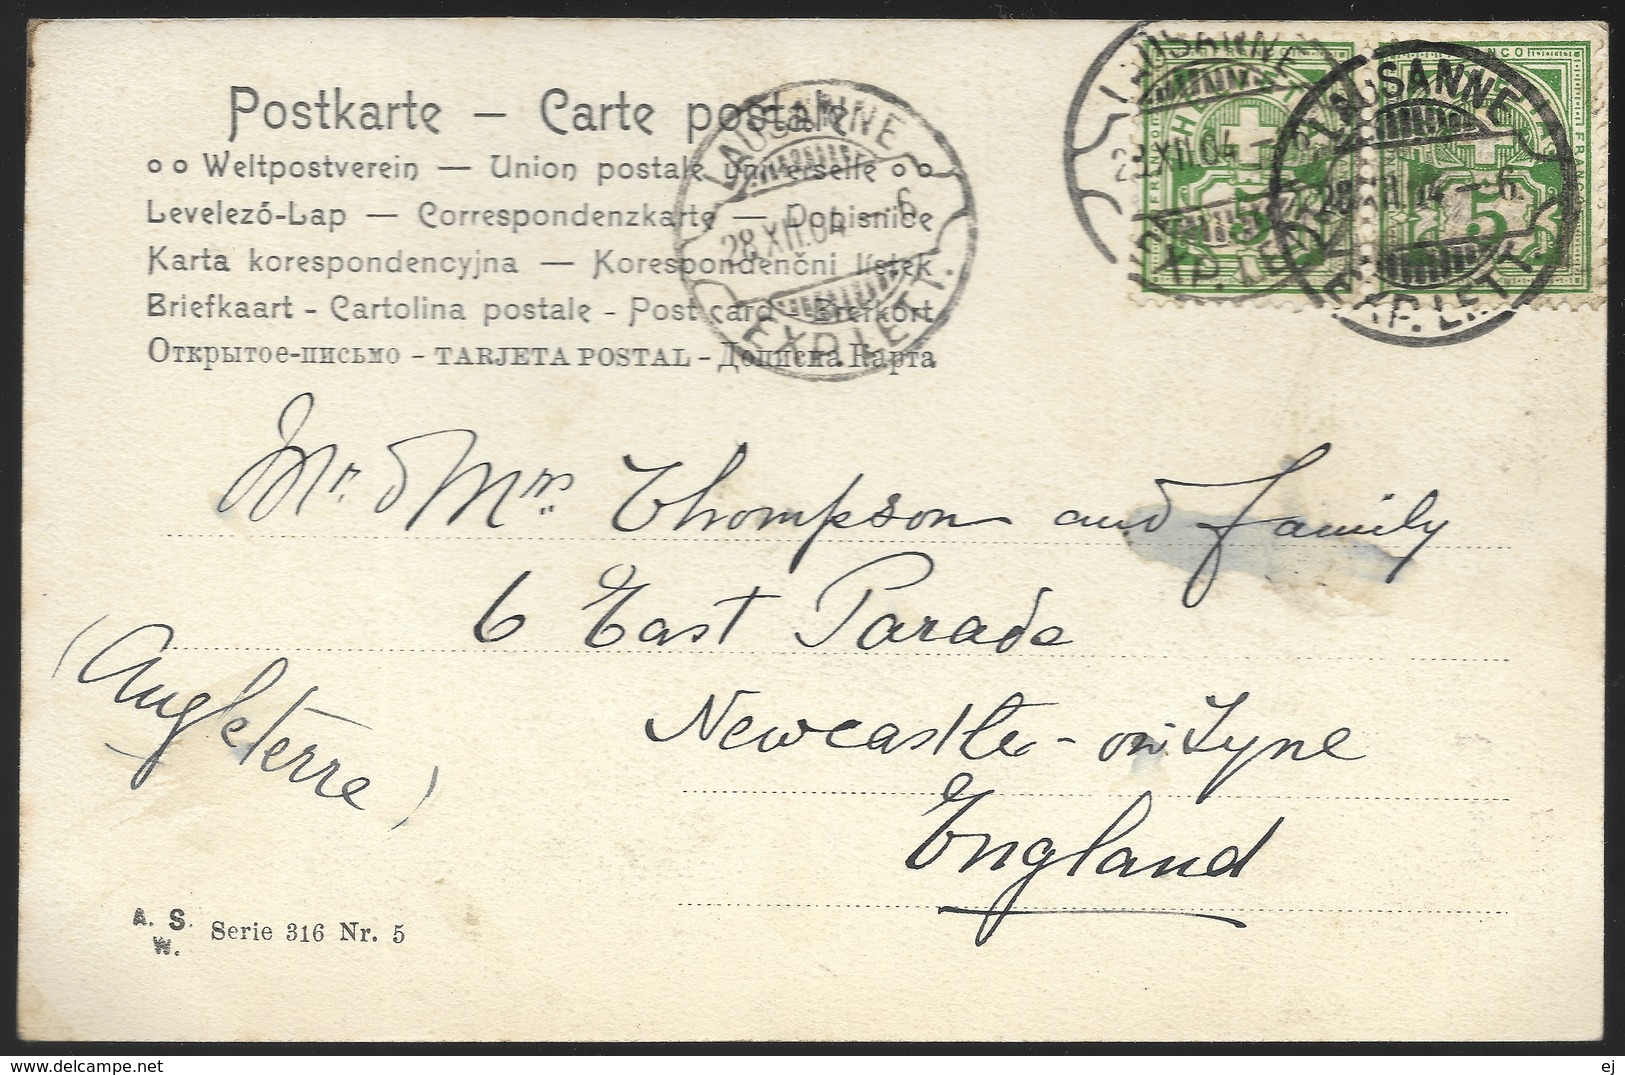 Postkarte – Carte postale
Weltpostverein — Union postale universelle
Levelező-Lap — Correspondenzkarte — Dopisnice
Karta korespondencyjna — Korespondenčni lístek
Briefkaart - Cartolina postale - Post card - Brefkort
Открытое-письмо - TARJETA POSTAL - Дописна Карта
LAUSANNE
28.XII.04 — 6
EXP. LETT.
LAUSANNE
28.XII.04 —
EXP. LETT.
LAUSANNE
28.XII.04 — 6
EXP. LETT.
FRANCO
5
5
Mr. & Mrs Thompson and Family
6 East Parade
Newcastle-on Tyne
England
(Angleterre)
A. S.
W.
Serie 316 Nr. 5
ej